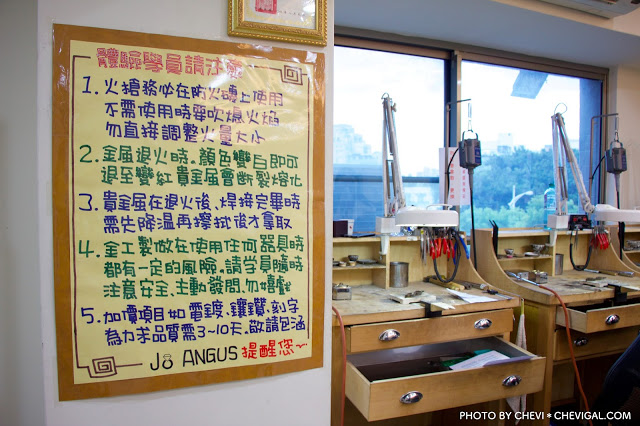 體驗學員請注意
1. 火搶務必在防火磚上使用
不需使用時要吹熄火焰
勿直接調整火量大小
2. 金屬退火時。顏色變白即可
退至變紅貴金屬會斷裂熔化
3. 貴金屬在退火後、焊接完畢時
需先降溫再擦拭後才拿取
4. 金工製做在使用任何器具時
都有一定的風險。請學員隨時
注意安全、主動發問、勿嬉戲
5. 加價項目如電鍍、鑲鑽、刻字
為力求品質需3~10天。敬請包涵
Jö ANGUS 提醒您~
PHOTO BY CHEVI * CHEVIGAL.COM